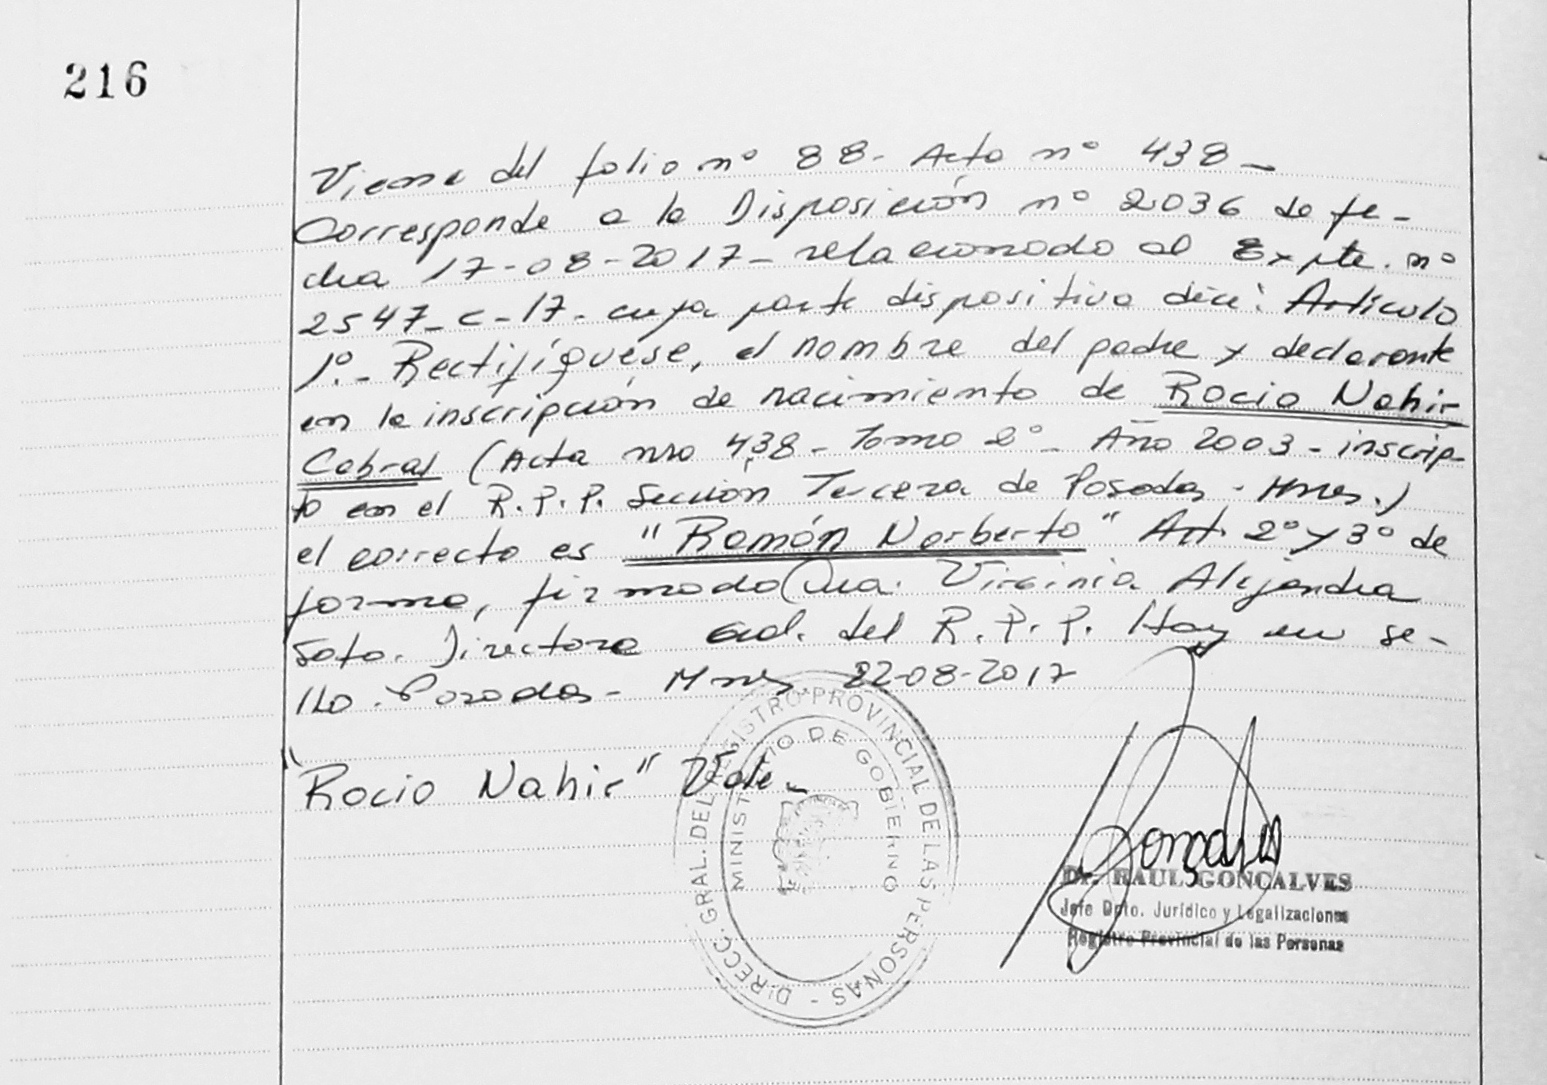 216
Viene del folio nº 88- Acta nº 438-
Corresponde a la Disposición nº 2036 de fe-
cha 17-08-2017- relacionado al Expte. nº
2547-C-17- cuya parte dispositiva dice: Artículo
1º.- Rectifíquese, el nombre del padre y declarante
en la inscripción de nacimiento de Rocio Nahir
Cabral (Acta nro 438- Tomo 2º- Año 2003- inscrip-
to en el R.P.P. Sección Tercera de Posadas- Mnes.)
el correcto es "Ramón Norberto" Art. 2º y 3º de
forma, firmado Dra. Virginia Alejandra
Soto. Directora Gral. del R.P.P. Hay un se-
llo. Posadas- Mnes 22-08-2017
"Rocio Nahir" Vale-
DIRECC. GRAL. DEL REGISTRO PROVINCIAL DE LAS PERSONAS -
MINISTERIO DE GOBIERNO
Dr. RAUL GONCALVES
Jefe Dpto. Jurídico y Legalizaciones
Registro Provincial de las Personas